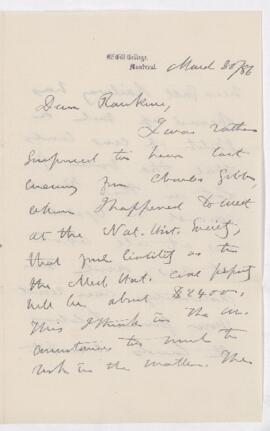 McGill College,
Montreal.
March 30/86
Dear Rankine,
I was rather
surprised to hear last
evening from Charles Gibb,
whom I happened to meet
at the Nat. Hist. Society,
that your liability as to
the Med. coal property
will be about $2400.
This I think in the cir-
cumstances too much to
risk in the matter. The